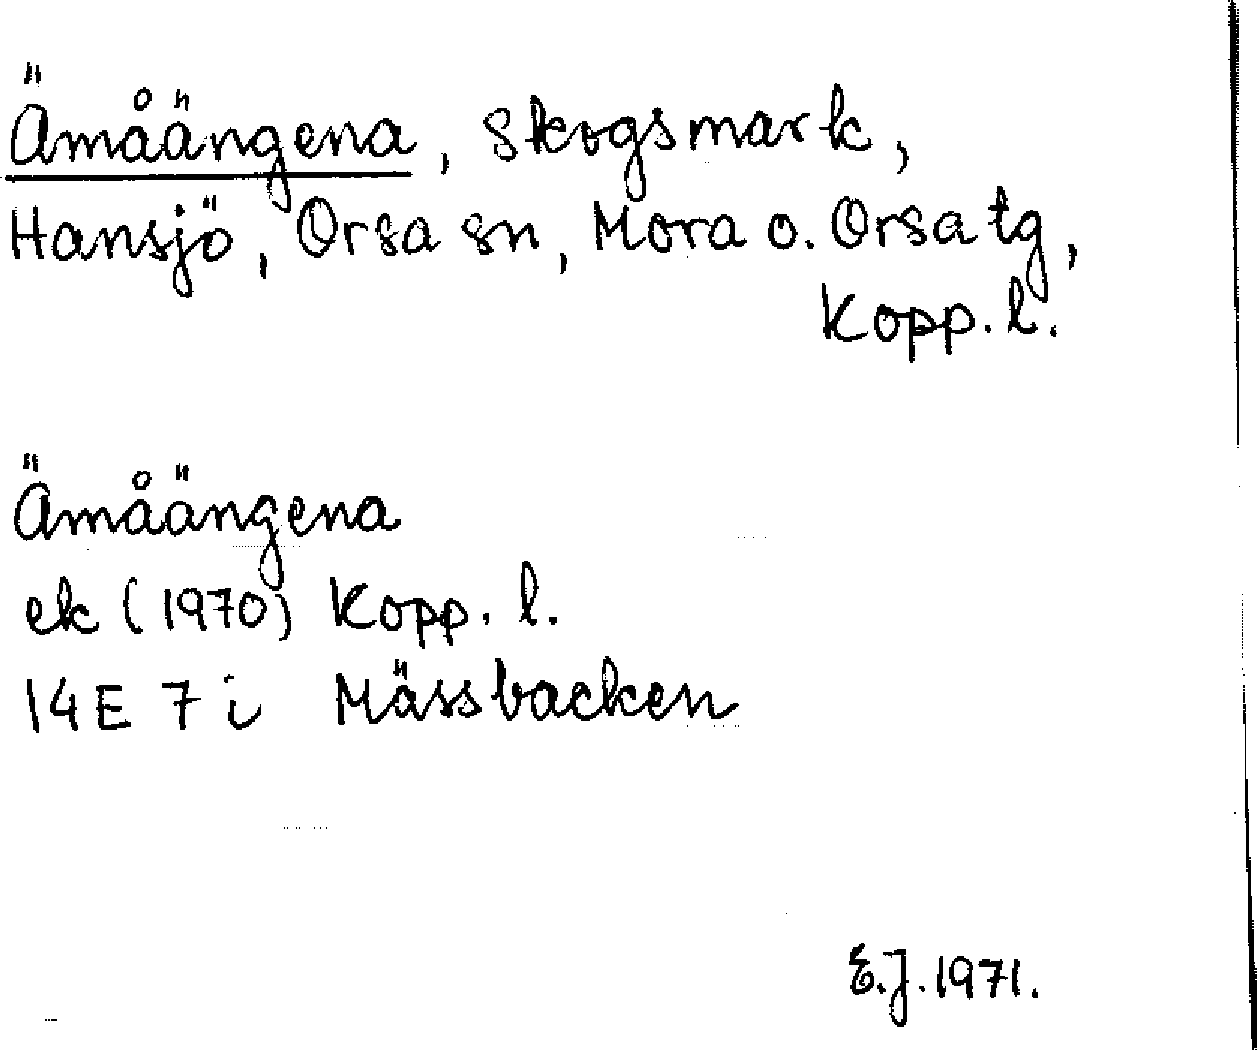 Ämåängena, skogsmark,
Hansjö, Orsa sn, Mora o. Orsa tg,
Kopp. l.
Ämåängena
ek (1970) Kopp. l.
14E 7i Mässbacken
E.J. 1971.